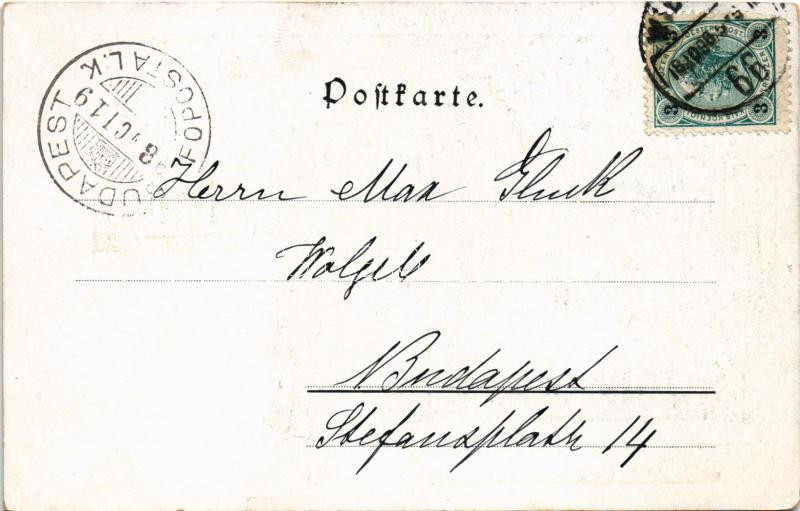 Postkarte.
BUDAPEST
FŐPOSTA
OCT 19
3
99
Herrn Max Gluck
Budapest
Stefansplatz 14